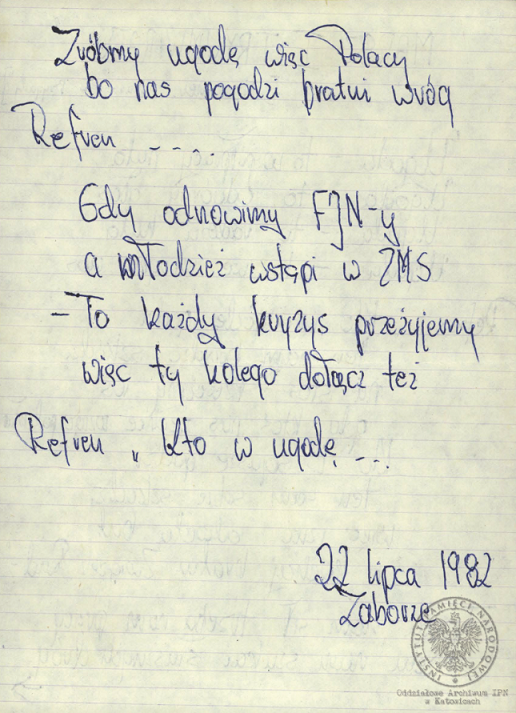 Zróbmy ugodę więc Polacy
bo nas pogodzi bratni wróg
Refren - - - -
Gdy odnowimy FJN-y
a młodzież wstąpi w ZMS
- To każdy kryzys przeżyjemy
więc ty kolego dołącz też
Refren „ Kto w ugodę - - -
22 lipca 1982
Zaborze
INSTYTUT PAMIĘCI NARODOWEJ
Oddziałowe Archiwum IPN
w Katowicach